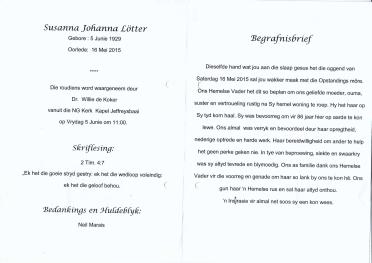 Susanna Johanna Lötter
Gebore : 5 Junie 1929
Oorlede: 16 Mei 2015
----
Die roudiens word waargeneem deur
Dr. Willie de Koker
vanuit die NG Kerk Kapel Jeffreysbaai
op Vrydag 5 Junie om 11:00.
Skriflesing:
2 Tim. 4:7
„Ek het die goeie stryd gestry: ek het die wedloop voleindig:
ek het die geloof behou.
Bedankings en Huldeblyk:
Neil Marais
Begrafnisbrief
Dieselfde hand wat jou aan die slaap gesus het die oggend van
Saterdag 16 Mei 2015 sal jou wakker maak met die Opstandings môre.
Ons Hemelse Vader het dit so beplan om ons geliefde moeder, ouma,
suster en vertroueling rustig na Sy hemel woning te roep. Hy het haar op
Sy tyd kom haal. Sy was bevoorreg om vir 86 jaar hier op aarde te kon
lewe. Ons almal was verryk en bevoordeel deur haar opregtheid,
nederige optrede en harde werk. Haar bereidwilligheid om ander te help
het geen perke geken nie. In tye van beproewing, siekte en swaarkry
was sy altyd tevrede en blymoedig. Ons as familie dank ons Hemelse
Vader vir die voorreg en genade om haar so lank by ons te kon hê. Ons
gun haar 'n Hemelse rus en sal haar altyd onthou.
'n vir almal net soos sy een kon wees.